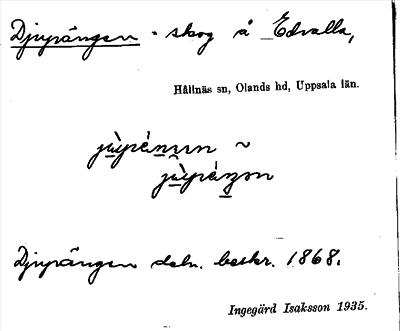 Djupängen - skog å Edvalla,
Hållnäs sn, Olands hd, Uppsala län.
Djupängen deln. beskr. 1868.
Ingegärd Isaksson 1935.